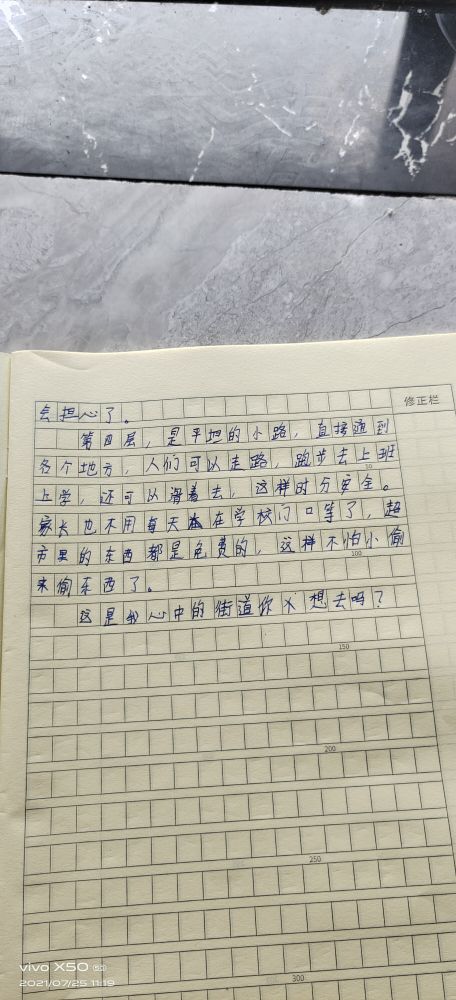 会担心了。
修正栏
第四层，是平坦的小路，直接通到
各个地方，人们可以走路，跑步去上班
上学，还可以滑着去，这样时分安全。
50
家长也不用每天在学校门口等了，超
市里的东西都是免费的，这样不怕小偷
100
来偷东西了。
这是我心中的街道你想去吗？
150
200
250
300
vivo X50 5G
2021/07/25 11:19